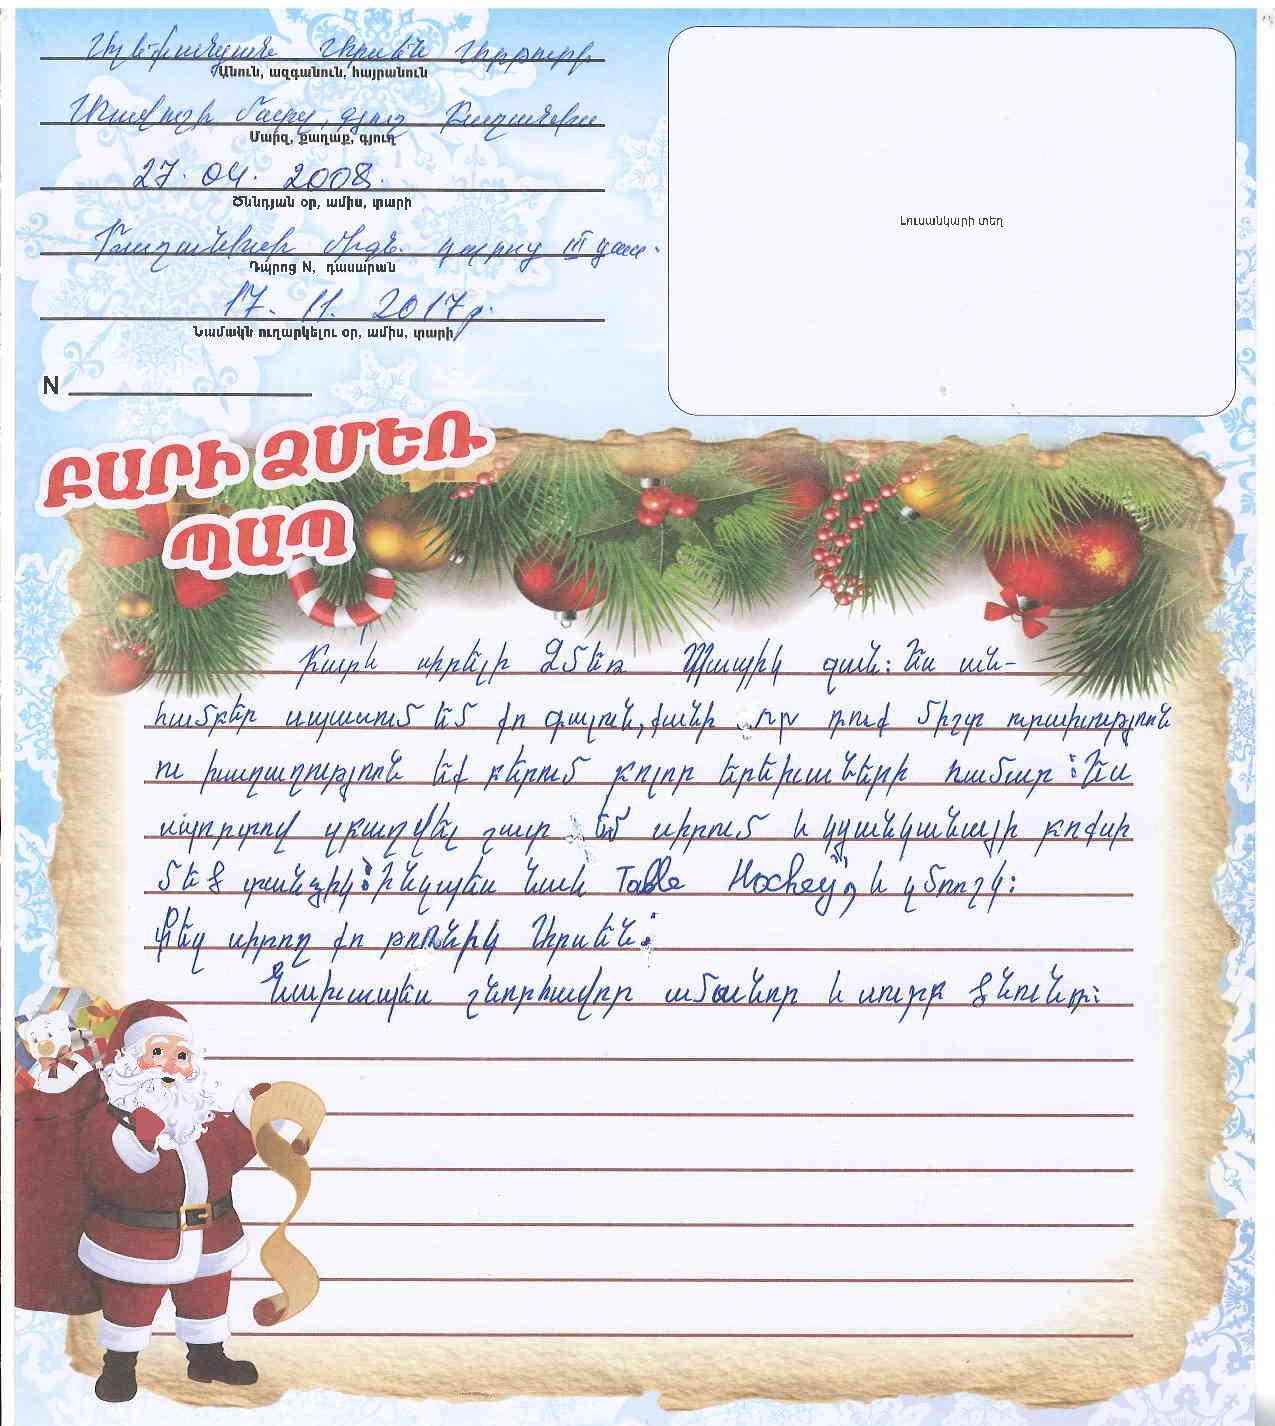 Ալեխանյան Արսեն Արթուրի
Անուն, ազգանուն, հայրանուն
Տավուշի մարզ, գյուղ Բաղանիս
Մարզ, քաղաք, գյուղ
27. 04. 2008.
Ծննդյան օր, ամիս, տարի
Բաղանիսի միջն. դպրոց III դաս.
Դպրոց N, դասարան
17. 11. 2017թ.
Նամակն ուղարկելու օր, ամիս, տարի
N
Լուսանկարի տեղ
ԲԱՐԻ ՁՄԵՌ
ՊԱՊ
Բարի՛ և սիրելի Ձմեռ Պապիկ ջան: Ես ան-
համբեր սպասում եմ քո գալուն, քանի որ դուք միշտ ուրախություն
ու խաղաղություն եք բերում բոլոր երեխաների համար: Ես
սպորտով զբաղվել շատ եմ սիրում և կցանկանայի բոքսի
մեծ տանձիկ: Ինչպես նաև Table Hockey և չմուշկ:
Քեզ սիրող քո թոռնիկ Արսեն:
Նախապես շնորհավոր ամանոր և սուրբ ծնունդ: